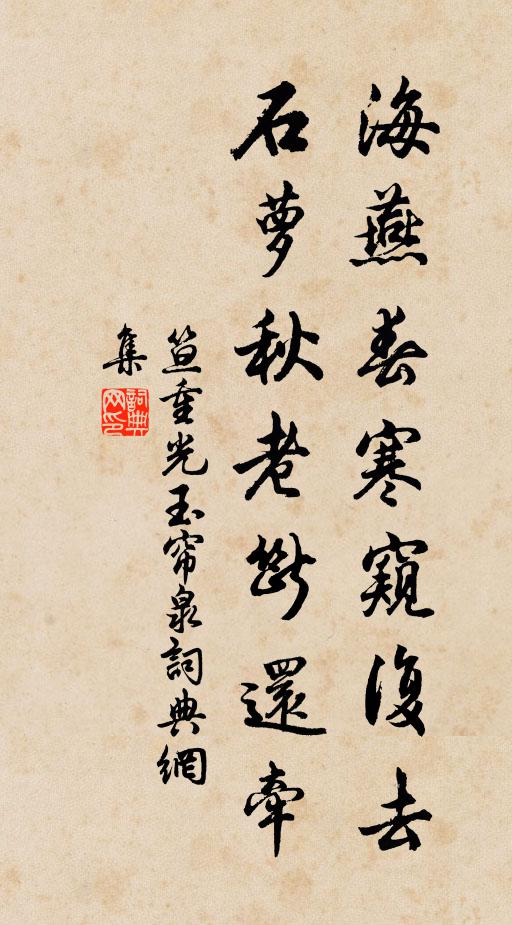 海燕春寒窺復去
石夢秋老斷還牽
笪重光玉帘泉詞典網
集
詞典
网印